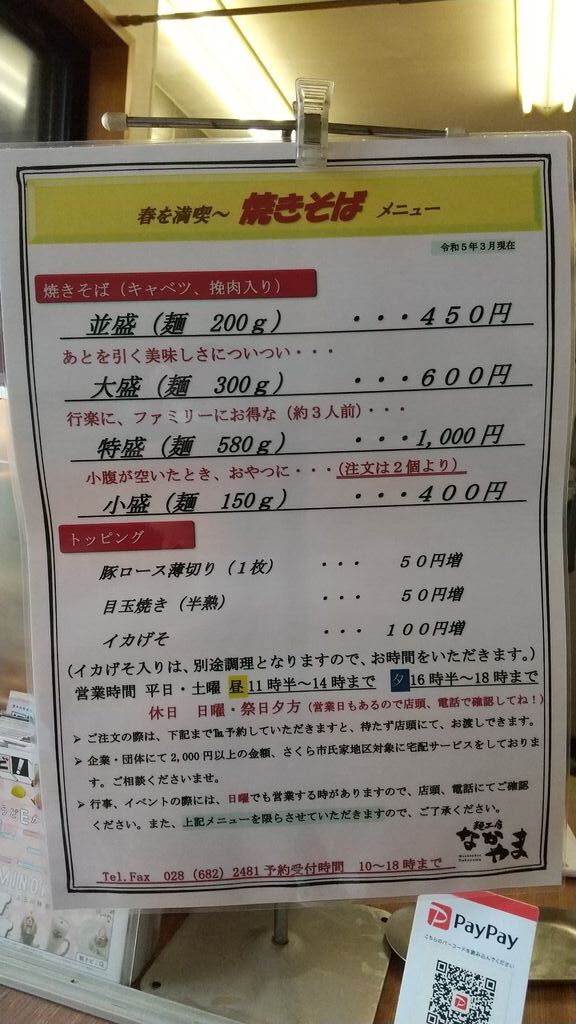 春を満喫～ 焼きそば メニュー
令和5年3月現在
焼きそば（キャベツ、挽肉入り）
並盛（麺 200ｇ） ・・・４５０円
あとを引く美味しさについつい・・・
大盛（麺 300ｇ） ・・・６００円
行楽に、ファミリーにお得な（約３人前）・・・
特盛（麺 580ｇ） ・・・1,000円
小腹が空いたとき、おやつに・・・（注文は２個より）
小盛（麺 150ｇ） ・・・４００円
トッピング
豚ロース薄切り（１枚） ・・・ ５０円増
目玉焼き（半熟） ・・・ ５０円増
イカげそ ・・・ １００円増
（イカげそ入りは、別途調理となりますので、お時間をいただきます。）
営業時間 平日・土曜 昼 11時半～14時まで 夕 16時半～18時まで
休日 日曜・祭日夕方（営業日もあるので店頭、電話で確認してね！）
➢ ご注文の際は、下記まで℡予約していただきますと、待たず店頭にて、お渡しできます。
➢ 企業・団体にて2,000円以上の金額、さくら市氏家地区対象に宅配サービスをしておりま
す。ご相談くださいませ。
➢ 行事、イベントの際には、日曜でも営業する時がありますので、店頭、電話にてご確認
ください。また、上記メニューを限らさせていただきますので、ご了承ください。
麺工房
なかやま
Tel.Fax 028（682）2481予約受付時間 10～18時まで
PayPay
こちらのバーコードを読み込んでください